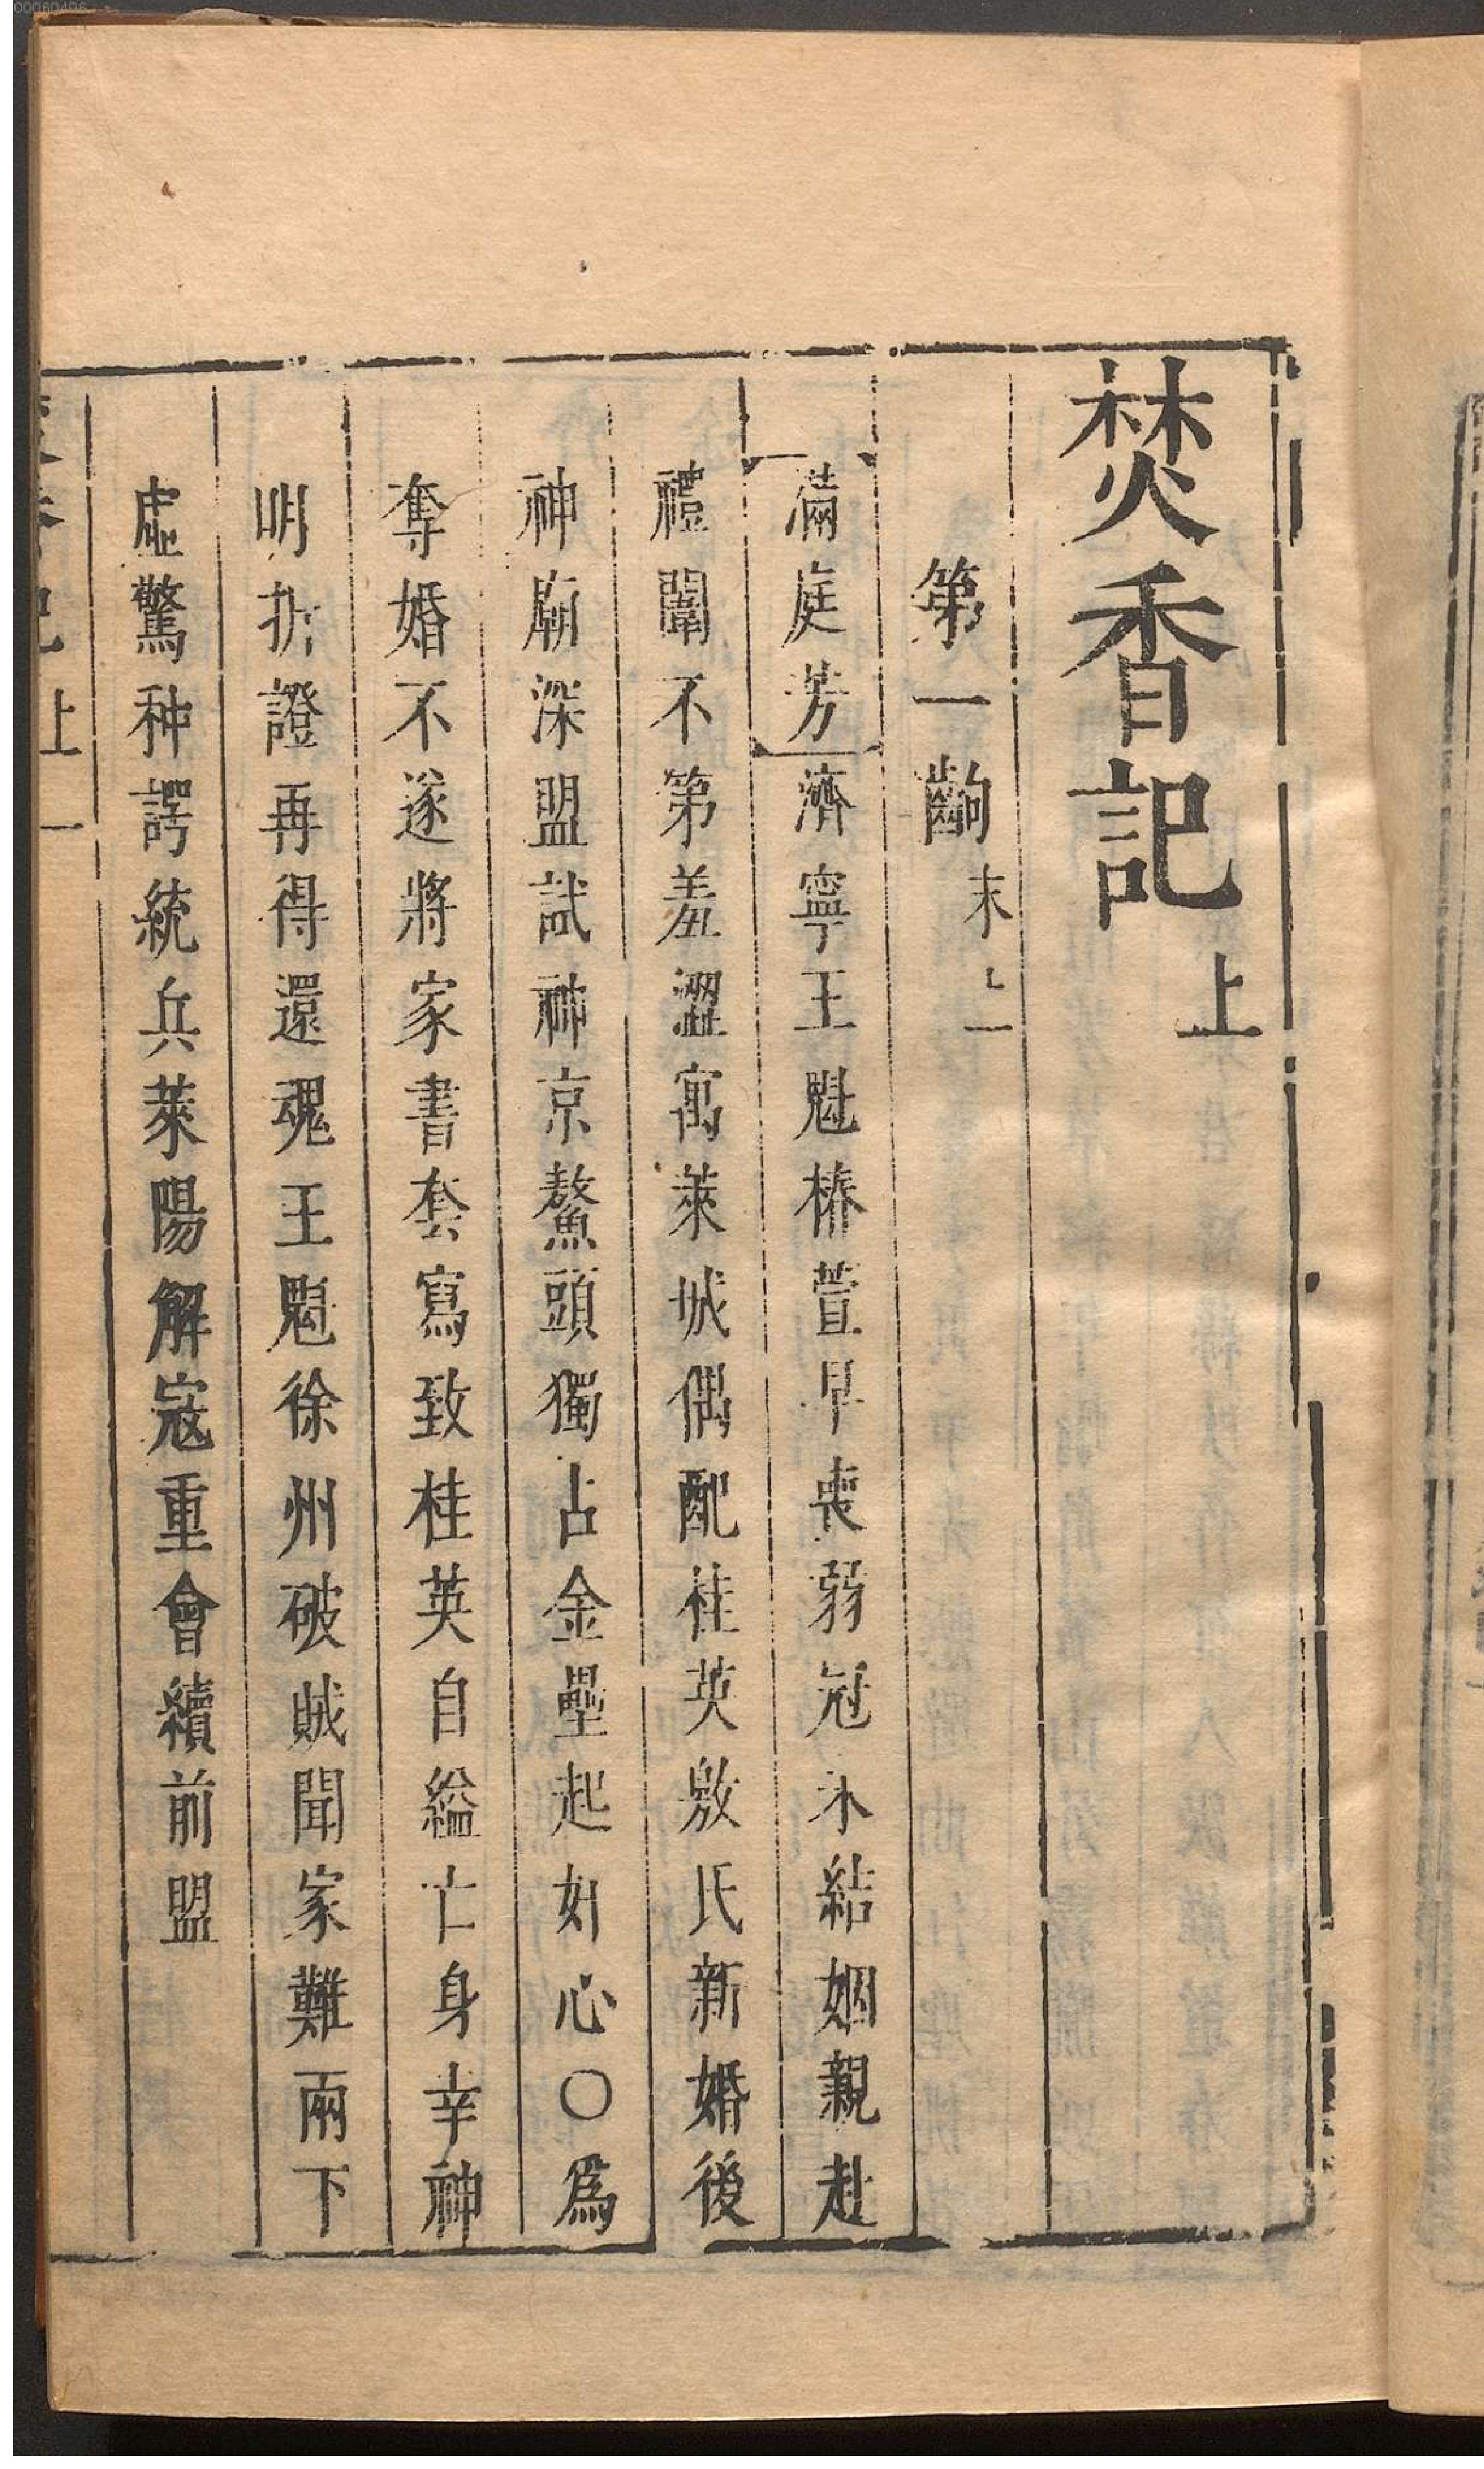 焚香記上
第一齣末上
滿庭芳濟寧王魁椿萱早喪弱冠未結姻親赴
禮闈不第羞澀寓萊城偶配桂英敫氏新婚後
神廟深盟試神京鰲頭獨占金壘起奸心〇爲
奪婚不遂將家書套寫致桂英自縊亡身幸神
明折證再得還魂王魁徐州破賊聞家難兩下
虛驚种諤統兵萊陽解寇重會續前盟
上 一
00060406